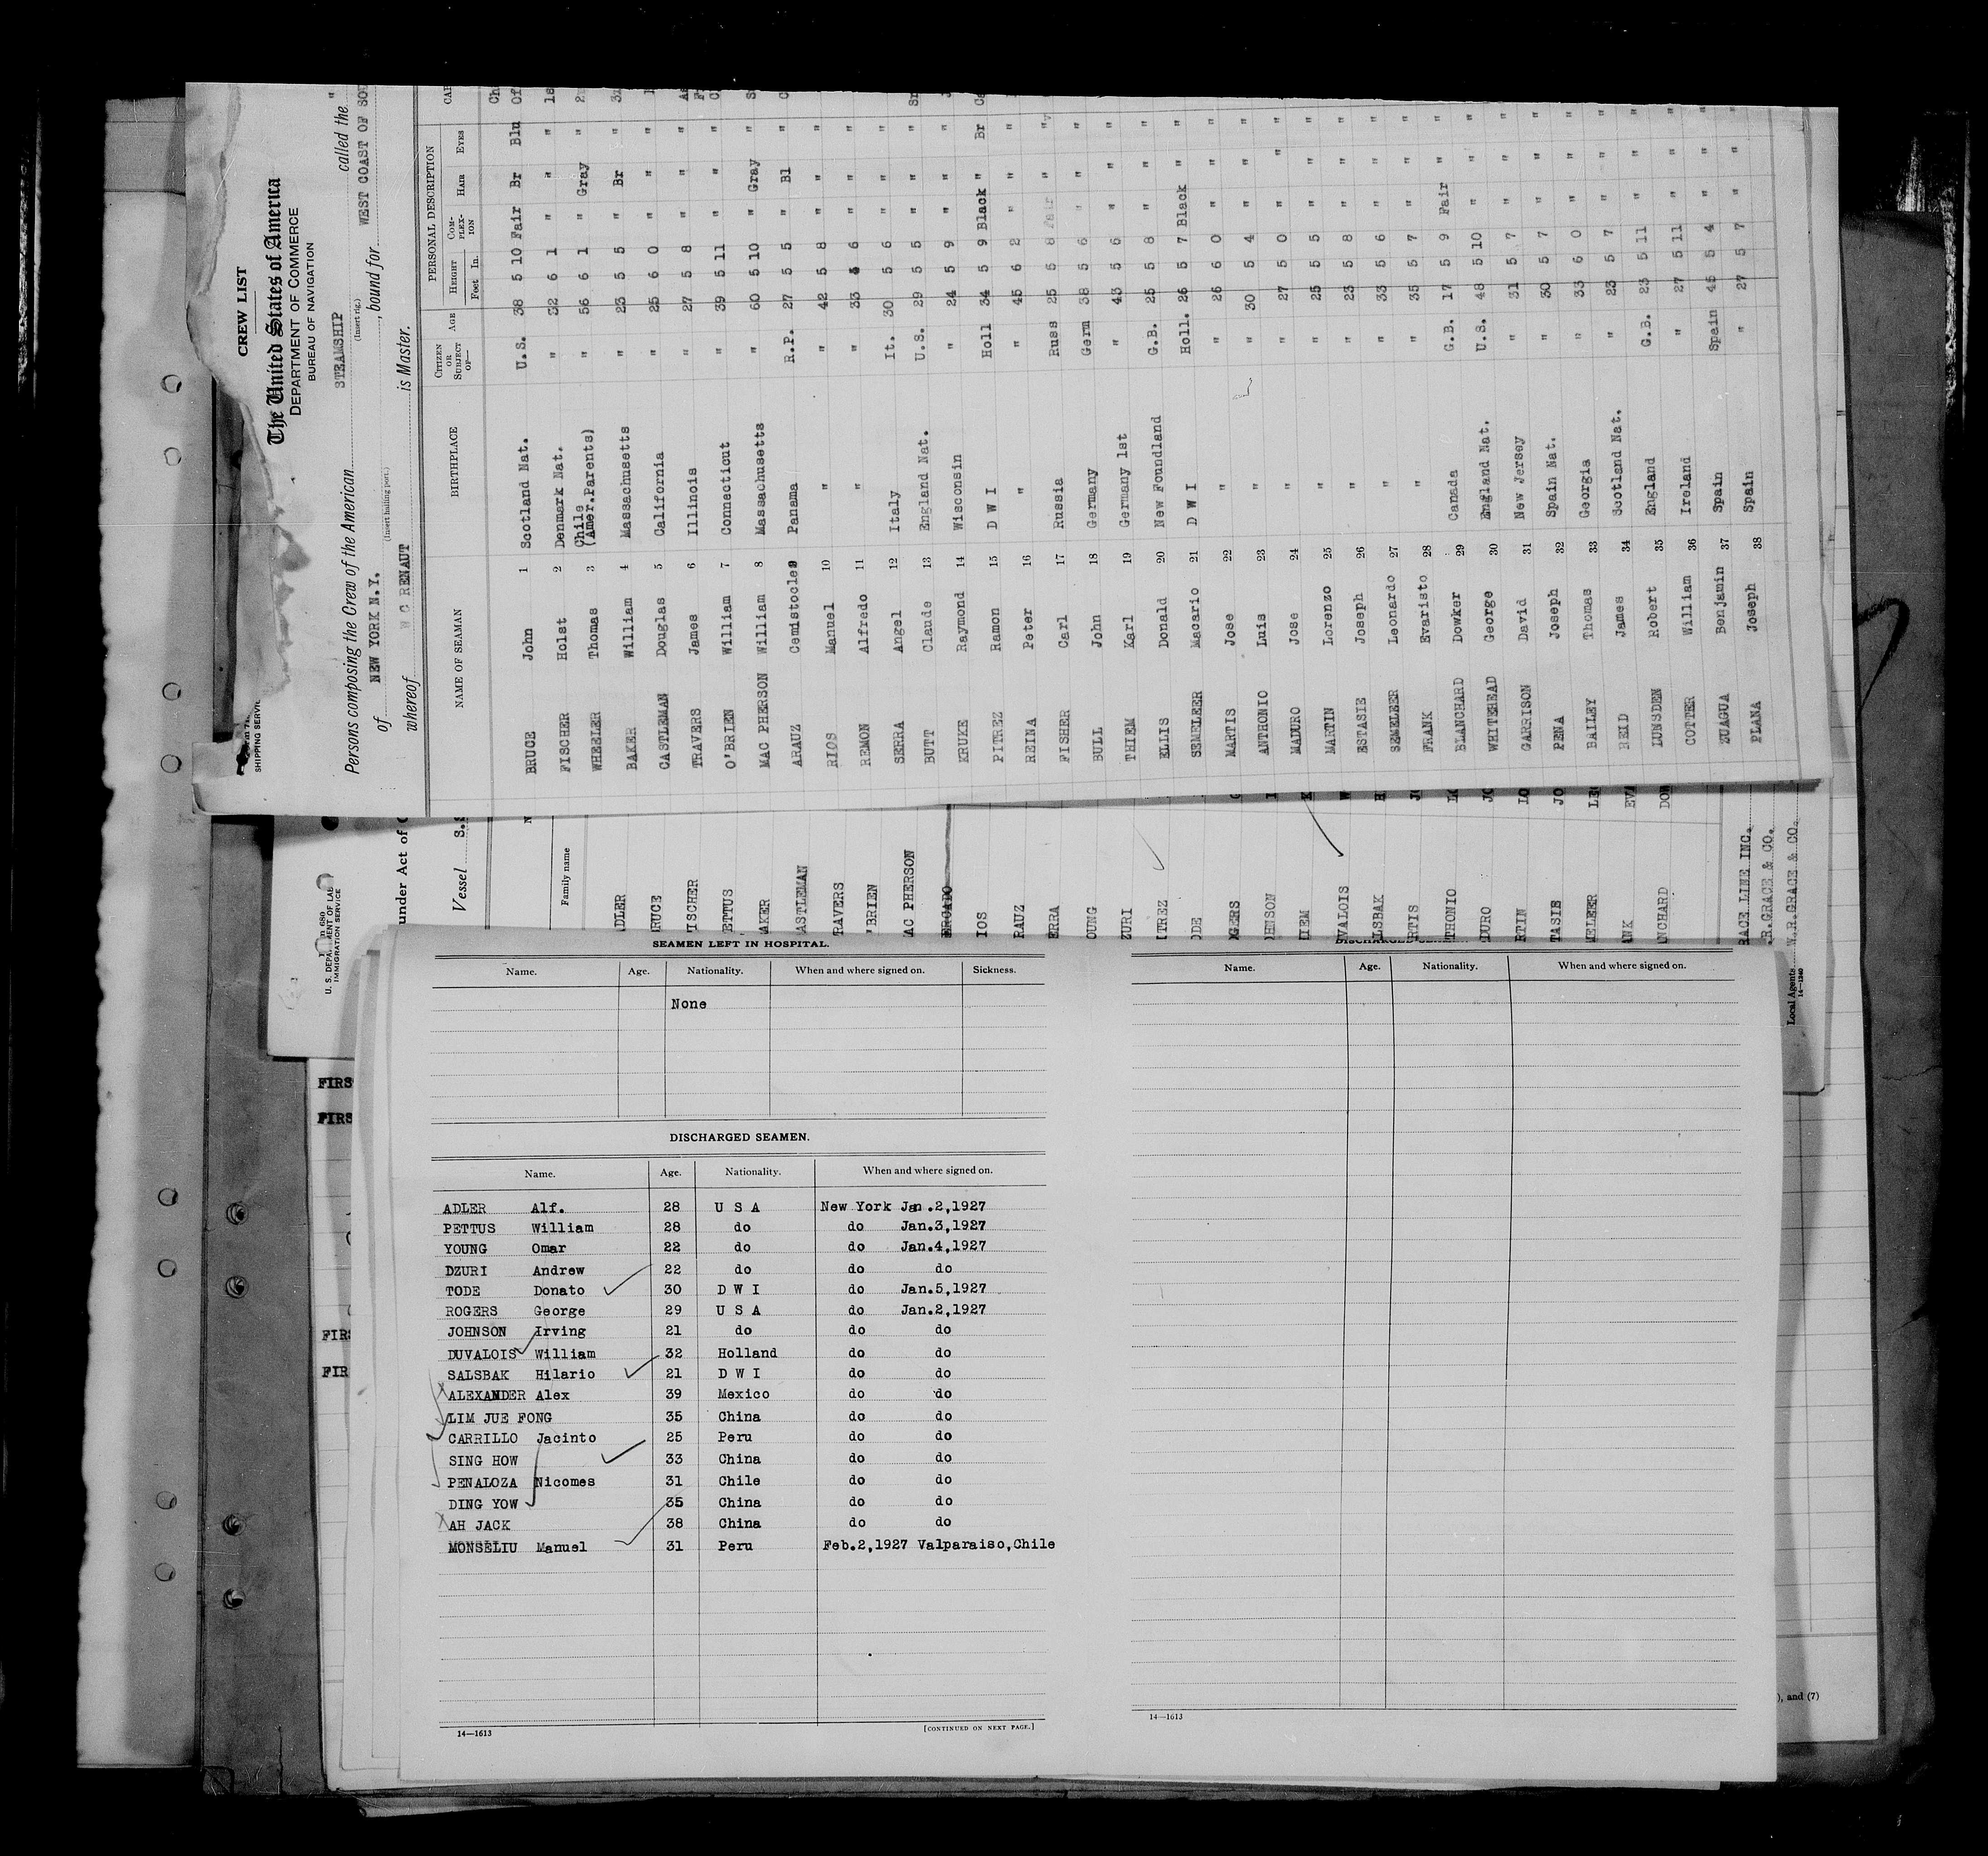 CREW LIST
The United States of America
DEPARTMENT OF COMMERCE
BUREAU OF NAVIGATION
SHIPPING SERVIC
STEAMSHIP
(Insert rig.)
Persons composing the Crew of the American called the "
of NEW YORK N.Y. , bound for WEST COAST OF SOU
(Insert hailing port.)
whereof W C RENAUT is Master.
NAME OF SEAMAN BIRTHPLACE CITIZEN OR SUBJECT OF— AGE PERSONAL DESCRIPTION CAP
HEIGHT Feet In. COMPLEXION HAIR EYES
BRUCE John 1 Scotland Nat. U.S. 38 5 10 Fair Br Blu
FISCHER Holst 2 Denmark Nat. " 32 6 1 " " "
WHEELER Thomas 3 Chile (Amer.Parents) " 56 6 1 " Gray "
BAKER William 4 Massachusetts " 23 5 5 " Br "
CASTLEMAN Douglas 5 California " 25 6 0 " " "
TRAVERS James 6 Illinois " 27 5 8 " " "
O'BRIEN William 7 Connecticut " 39 5 11 " " "
MAC PHERSON William 8 Massachusetts " 60 5 10 " Gray "
ARAUZ Cemistocles 9 Panama R.P. 27 5 5 " Bl "
RIOS Manuel 10 " " 42 5 8 " " "
REMON Alfredo 11 " " 33 5 6 " " "
SERRA Angel 12 Italy It. 30 5 6 " " "
BUTT Claude 13 England Nat. U.S. 29 5 5 " " "
KRUKE Raymond 14 Wisconsin " 24 5 9 " " "
PITREZ Ramon 15 D W I Holl 34 5 9 Black " Br
REINA Peter 16 " " 45 6 2 " " "
FISHER Carl 17 Russia Russ 25 5 8 Fair " "
BULL John 18 Germany Germ 38 5 6 " " "
THIEM Karl 19 Germany 1st " 43 5 6 " " "
ELLIS Donald 20 New Foundland G.B. 25 5 8 " " "
SEMELEER Macario 21 D W I Holl. 26 5 7 Black " "
MARTIS Jose 22 " " 26 6 0 " " "
ANTHONIO Luis 23 " " 30 5 4 " " "
MADURO Jose 24 " " 27 5 0 " " "
MARTIN Lorenzo 25 " " 25 5 5 " " "
ESTASIE Joseph 26 " " 23 5 8 " " "
SEMELEER Leonardo 27 " " 33 5 6 " " "
FRANK Evaristo 28 " " 35 5 7 " " "
BLANCHARD Dowker 29 Canada G.B. 17 5 9 Fair " "
WHITEHEAD George 30 England Nat. U.S. 48 5 10 " " "
GARRISON David 31 New Jersey " 31 5 7 " " "
PENA Joseph 32 Spain Nat. " 30 5 7 " " "
BAILEY Thomas 33 Georgia " 33 6 0 " " "
REID James 34 Scotland Nat. " 23 5 7 " " "
LUNSDEN Robert 35 England G.B. 23 5 11 " " "
COTTER William 36 Ireland " 27 5 11 " " "
ZUAGUA Benjamin 37 Spain Spain 45 5 4 " " "
PLANA Joseph 38 Spain " 27 5 7 " " "
U. S. DEPARTMENT OF LAB
IMMIGRATION SERVICE
under Act of
Vessel S.S
Family name
DLER
RUCE
ISCHER
ETTUS
AKER
ASTLEMAN
RAVERS
'BRIEN
AC PHERSON
ERCADO
IOS
RAUZ
ERRA
OUNG
ZURI
ITREZ
ODE
OGERS
OHNSON
IEM
VALOIS
LSBAK
RTIS
THONIO
DURO
RTIN
TASIE
MELEER
NK
NCHARD
RACE LINE INC.
.R.GRACE & CO.
W.R.GRACE & CO.
Local Agents
14—1240
FIRS
FIRS
FIRS
FIR
SEAMEN LEFT IN HOSPITAL.
Name. Age. Nationality. When and where signed on. Sickness.
None
DISCHARGED SEAMEN.
Name. Age. Nationality. When and where signed on.
ADLER Alf. 28 U S A New York Jan.2,1927
PETTUS William 28 do do Jan.3,1927
YOUNG Omar 22 do do Jan.4,1927
DZURI Andrew 22 do do do
TODE Donato 30 D W I do Jan.5,1927
ROGERS George 29 U S A do Jan.2,1927
JOHNSON Irving 21 do do do
DUVALOIS William 32 Holland do do
SALSBAK Hilario 21 D W I do do
ALEXANDER Alex 39 Mexico do do
LIM JUE FONG 35 China do do
CARRILLO Jacinto 25 Peru do do
SING HOW 33 China do do
PENALOZA Nicomes 31 Chile do do
DING YOW 35 China do do
AH JACK 38 China do do
MONSELIU Manuel 31 Peru Feb.2,1927 Valparaiso,Chile
14—1613 [CONTINUED ON NEXT PAGE.]
Name. Age. Nationality. When and where signed on.
14—1613
), and (7)